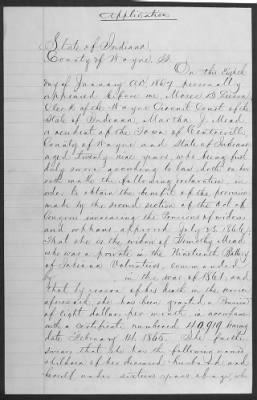 Application
State of Indiana
County of Wayne SS.
On this Eighth
day of January A.D. 1867 personally
appeared before me Moses D. Leeson
Clerk of the Wayne Circuit Court of the
State of Indiana, Martha J. Mead
a resident of the Town of Centerville
County of Wayne and State of Indiana
aged twenty nine years, who being first
duly sworn according to law, doth on her
oath make the following declaration, in
order to obtain the benefit of the provision
made by the second section of the Act of
Congress increasing the Pensions of widows
and orphans, approved July 25, 1866;
That she is the widow of Timothy Mead
who was a private in the Nineteenth Battery
of Indiana Volunteers, commanded
by in the war of 1861, and
that by reason of his death in the service
aforesaid she has been granted a Pension
of eight dollars per month in accordance
with a certificate numbered 40,919 bearing
date February 14, 1865. She further
swears that she has the following named
children of her deceased husband and
herself under sixteen years of age, who